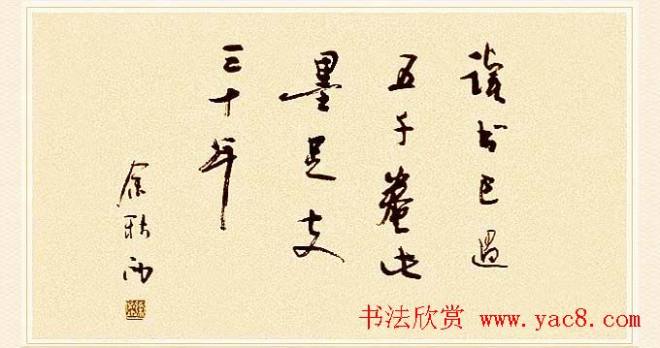 读书已过
五千卷此
墨足支
三十年
余秋雨
书法欣赏 www.yac8.com